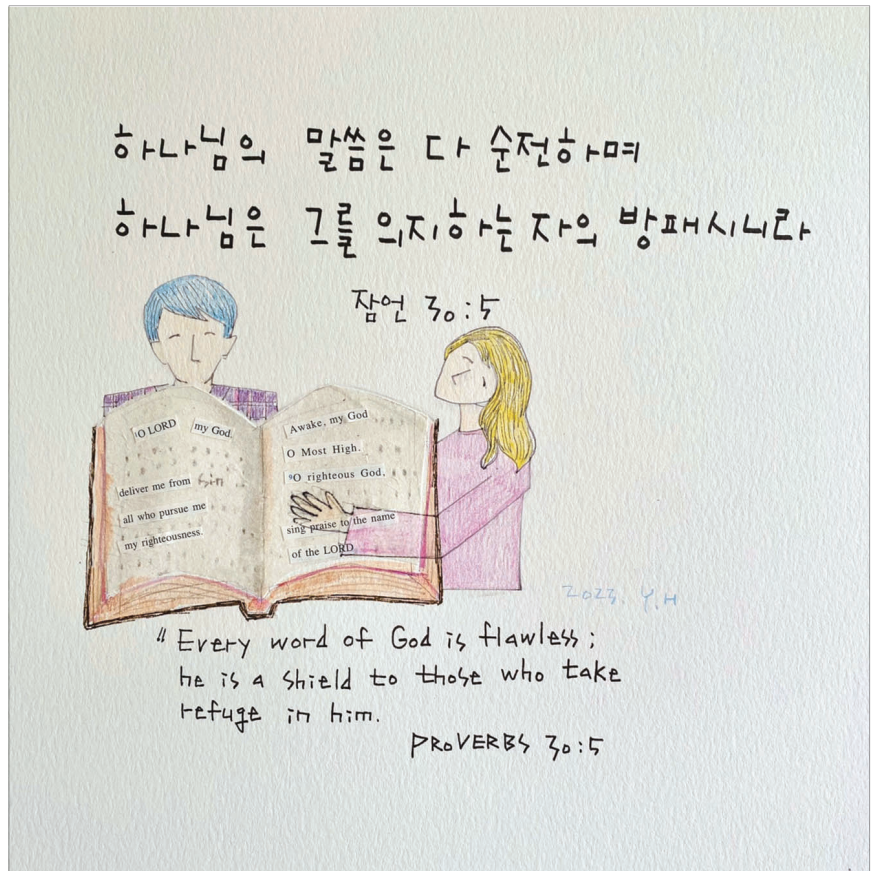 하나님의 말씀은 다 순전하며
하나님은 그를 의지하는 자의 방패시니라
잠언 30:5
¹O LORD my God.
deliver me from sin
all who pursue me
my righteousness.
Awake, my God
O Most High.
⁹O righteous God,
sing praise to the name
of the LORD
2023. Y.H
"Every word of God is flawless;
he is a shield to those who take
refuge in him.
PROVERBS 30:5